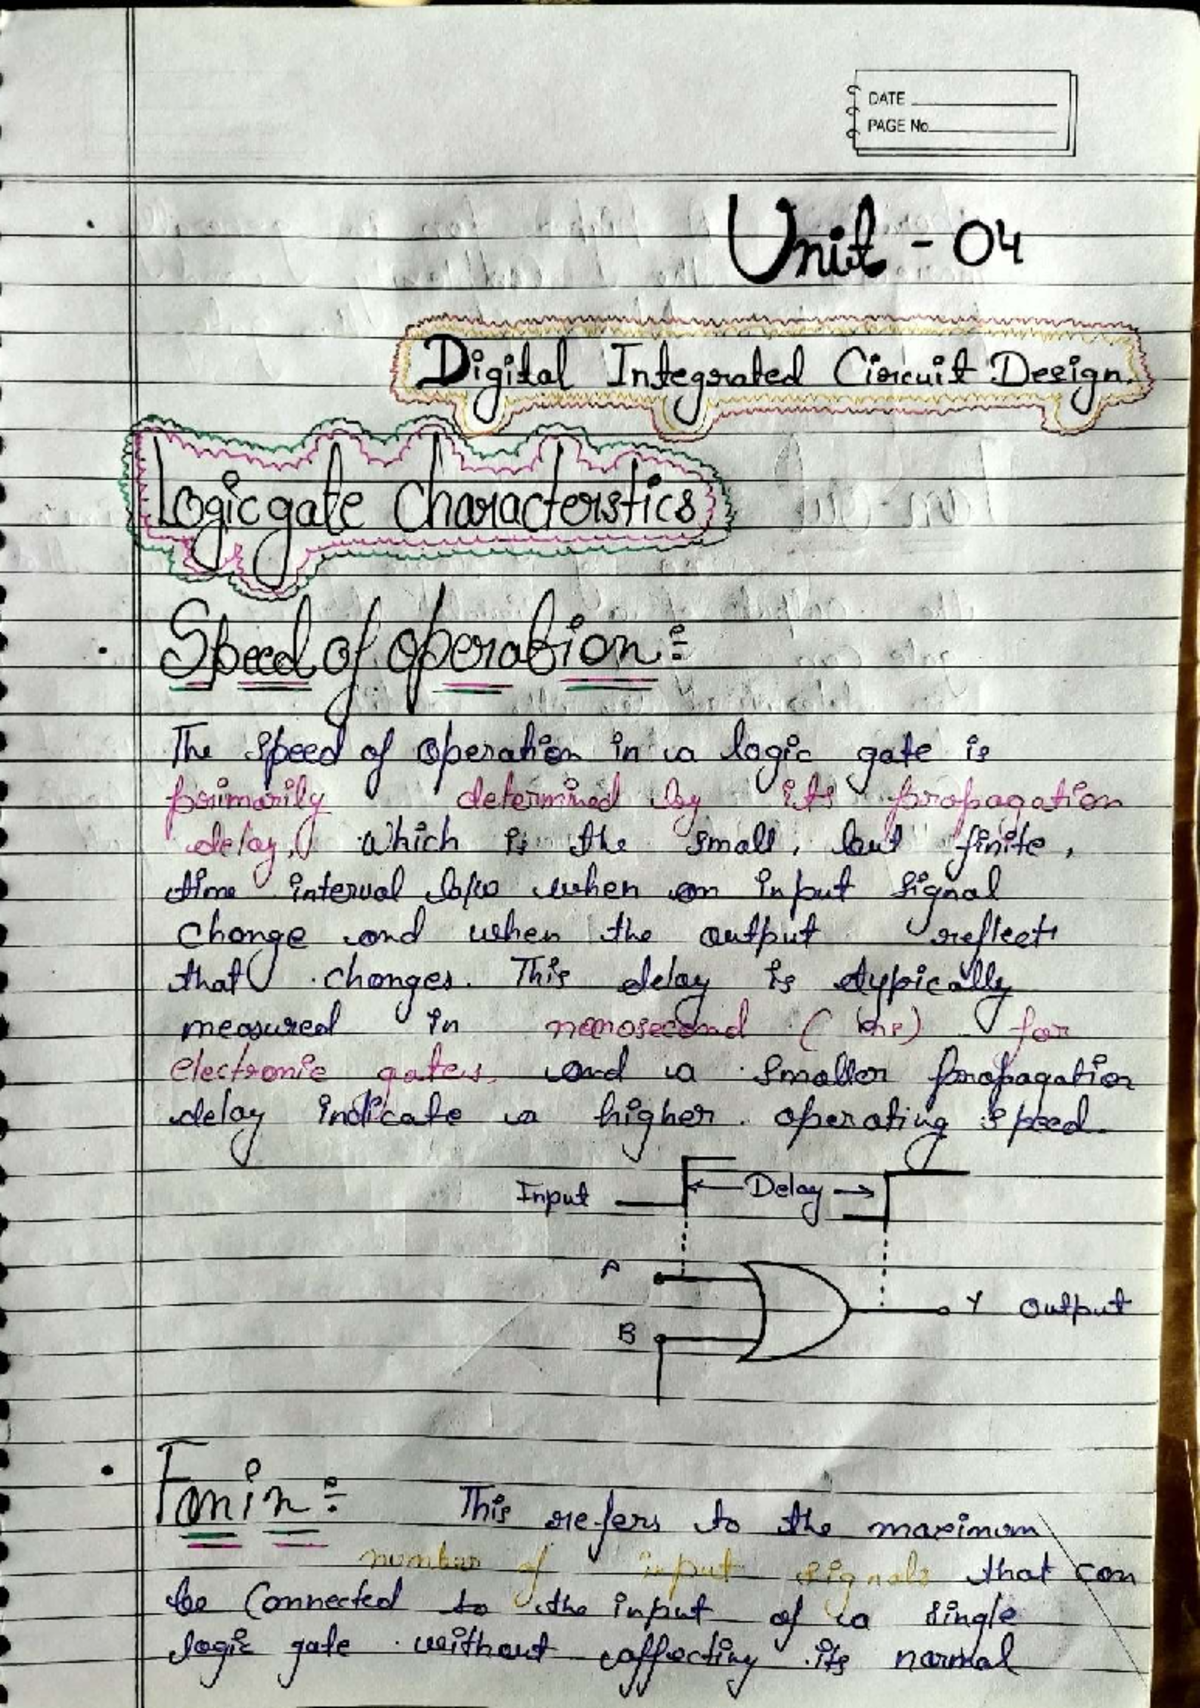 DATE
PAGE No.
Unit - 04
Digital Integrated Circuit Design.
Logic gate Characterstics
Speed of operation :-
The speed of operation in a logic gate is
primarily determined by its propagation
delay, which is the small, but finite,
time interval b/w when an input signal
change and when the output reflect
that changes. This delay is typically
measured in nanosecond (ns) for
electronic gates, and a smaller propagation
delay indicate a higher operating speed.
Input Delay
A
B Y Output
Fan in :- This refers to the maximum
number of input signals that can
be connected to the input of a single
logic gate without affecting its normal